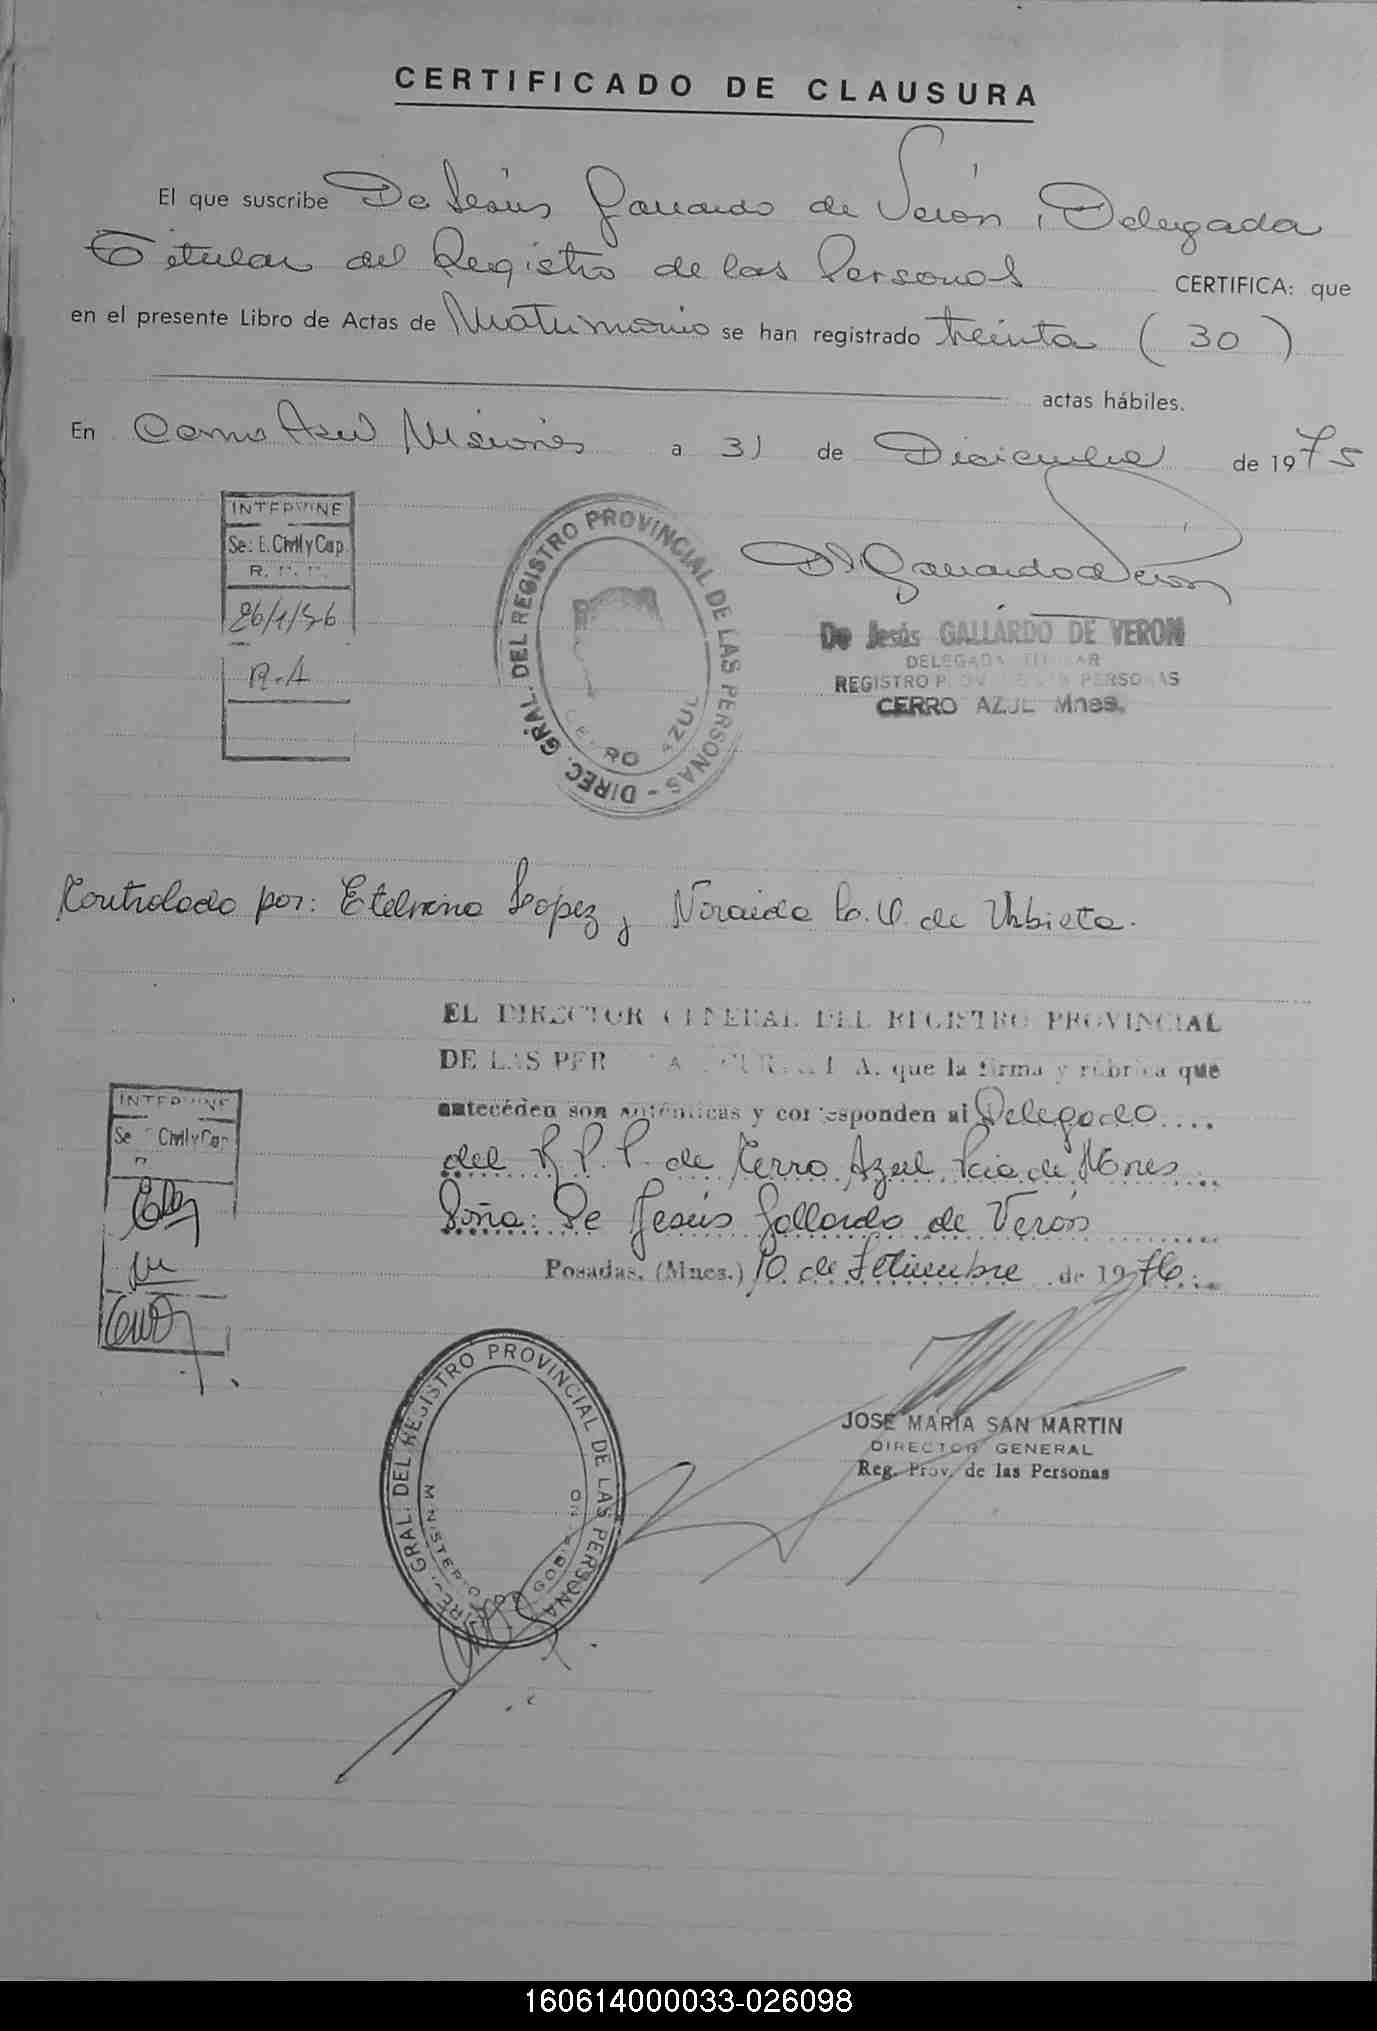 CERTIFICADO DE CLAUSURA
El que suscribe De Jesús Gallardo de Verón, Delegada
Titular del Registro de las Personas CERTIFICA: que
en el presente Libro de Actas de Matrimonio se han registrado treinta (30)
actas hábiles.
En Cerro Azul Misiones a 31 de Diciembre de 1975
INTERVINE
Se: E. Civil y Cap.
26/1/76
R.A
DIREC. GRAL. DEL REGISTRO PROVINCIAL DE LAS PERSONAS -
CERRO AZUL
D J Gallardo de Verón
De Jesús GALLARDO DE VERON
DELEGADA TITULAR
REGISTRO PROV DE LAS PERSONAS
CERRO AZUL Mnes.
Controlado por: Etelvina Lopez y Noraida de Urbieta.
EL DIRECTOR GENERAL DEL REGISTRO PROVINCIAL
DE LAS PER que la firma y rúbrica que
anteceden son auténticas y corresponden al Delegado
del R.P.P. de Cerro Azul Pcia de Mnes
Doña: De Jesús Gallardo de Verón
Posadas, (Mnes.) 10 de Setiembre de 1976
INTERVINE
Se Civil y Cap
DIREC. GRAL. DEL REGISTRO PROVINCIAL DE LAS PERSONAS
MINISTERIO DE GOBIERNO
JOSE MARIA SAN MARTIN
DIRECTOR GENERAL
Reg. Prov. de las Personas
160614000033-026098